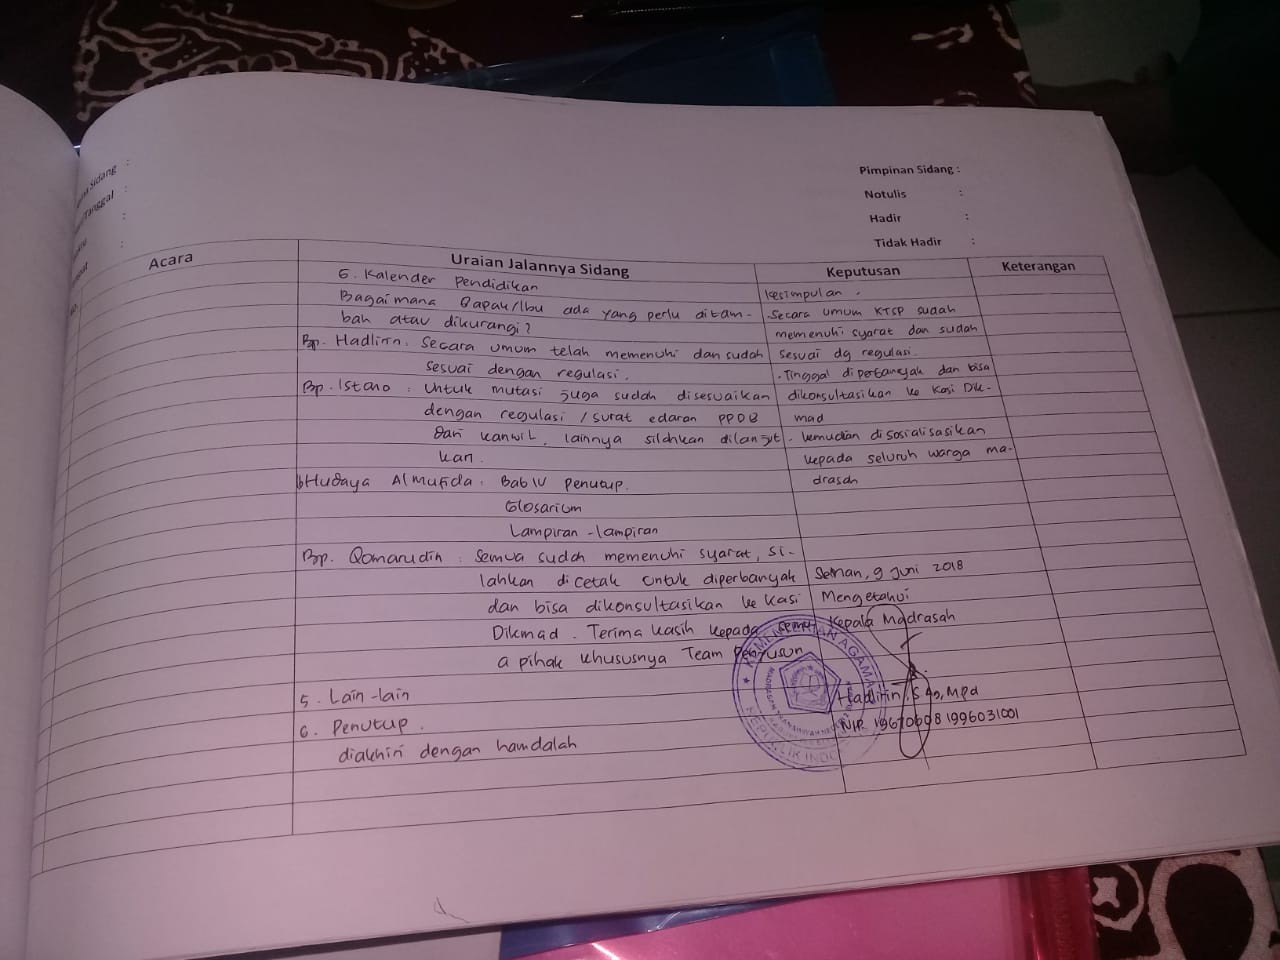 Pimpinan Sidang :
Notulis :
Hadir :
Tidak Hadir :
Sidang :
/Tanggal :
:
:
Acara
Uraian Jalannya Sidang
Keputusan
Keterangan
6. Kalender Pendidikan
Bagaimana Bapak/Ibu ada yang perlu ditam-
bah atau dikurangi?
Bp. Hadlirin : Secara umum telah memenuhi dan sudah
sesuai dengan regulasi.
Bp. Istano : Untuk mutasi juga sudah disesuaikan
dengan regulasi / surat edaran PPDB
dari kanwil, lainnya silahkan dilanjut
kan.
Hudaya Almufida : Bab IV Penutup.
Glosarium
Lampiran-lampiran
Bp. Qomarudin : Semua sudah memenuhi syarat, si-
lahkan dicetak untuk diperbanyak
dan bisa dikonsultasikan ke Kasi
Dikmad. Terima kasih kepada semu
a pihak khususnya Team Penyusun
5. Lain-lain
6. Penutup.
diakhiri dengan hamdalah
kesimpulan.
. Secara umum KTSP sudah
memenuhi syarat dan sudah
sesuai dg regulasi.
. Tinggal diperbanyak dan bisa
dikonsultasikan ke Kasi Dik-
mad
. kemudian disosialisasikan
kepada seluruh warga ma-
drasah
9 Juni 2018
Mengetahui
Kepala Madrasah
NIP. 19670608 1996031001
KEMENTERIAN AGAMA
REPUBLIK INDO